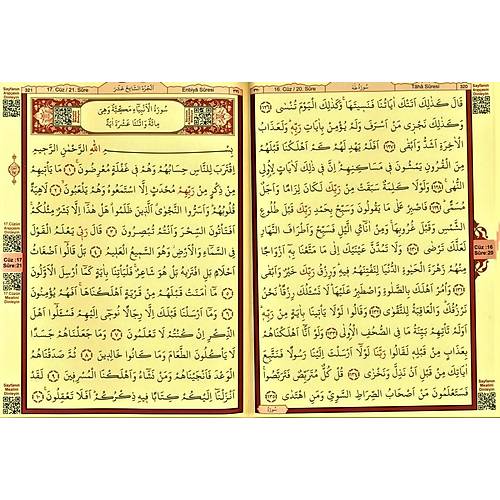 320
Tâhâ Sûresi
سُورَةُ طٰهٰ
16. Cüz / 20. Sûre
قَالَ كَذٰلِكَ اَتَتْكَ اٰيَاتُنَا فَنَسِيتَهَاۚ وَكَذٰلِكَ الْيَوْمَ تُنْسٰى ﴿١٢٦﴾
وَكَذٰلِكَ نَجْزِي مَنْ اَسْرَفَ وَلَمْ يُؤْمِنْ بِاٰيَاتِ رَبِّهِۜ وَلَعَذَابُ
الْاٰخِرَةِ اَشَدُّ وَاَبْقٰى ﴿١٢٧﴾ اَفَلَمْ يَهْدِ لَهُمْ كَمْ اَهْلَكْنَا قَبْلَهُمْ
مِنَ الْقُرُونِ يَمْشُونَ فِي مَسَاكِنِهِمْۜ اِنَّ فِي ذٰلِكَ لَاٰيَاتٍ لِاُولِي
النُّهٰى ﴿١٢٨﴾ وَلَوْلَا كَلِمَةٌ سَبَقَتْ مِنْ رَبِّكَ لَكَانَ لِزَامًا وَاَجَلٌ
مُسَمًّى ﴿١٢٩﴾ فَاصْبِرْ عَلٰى مَا يَقُولُونَ وَسَبِّحْ بِحَمْدِ رَبِّكَ قَبْلَ طُلُوعِ
الشَّمْسِ وَقَبْلَ غُرُوبِهَاۚ وَمِنْ اٰنَآئِ الَّيْلِ فَسَبِّحْ وَاَطْرَافَ النَّهَارِ
لَعَلَّكَ تَرْضٰى ﴿١٣٠﴾ وَلَا تَمُدَّنَّ عَيْنَيْكَ اِلٰى مَا مَتَّعْنَا بِهِ اَزْوَاجًا
مِنْهُمْ زَهْرَةَ الْحَيٰوةِ الدُّنْيَا لِنَفْتِنَهُمْ فِيهِۜ وَرِزْقُ رَبِّكَ خَيْرٌ وَاَبْقٰى
﴿١٣١﴾ وَأْمُرْ اَهْلَكَ بِالصَّلٰوةِ وَاصْطَبِرْ عَلَيْهَاۜ لَا نَسْـَٔلُكَ رِزْقًاۜ نَحْنُ
نَرْزُقُكَۜ وَالْعَاقِبَةُ لِلتَّقْوٰى ﴿١٣٢﴾ وَقَالُوا لَوْلَا يَأْتِينَا بِاٰيَةٍ مِنْ رَبِّهِۜ
اَوَلَمْ تَأْتِهِمْ بَيِّنَةُ مَا فِي الصُّحُفِ الْاُولٰى ﴿١٣٣﴾ وَلَوْ اَنَّا اَهْلَكْنَاهُمْ
بِعَذَابٍ مِنْ قَبْلِهِ لَقَالُوا رَبَّنَا لَوْلَا اَرْسَلْتَ اِلَيْنَا رَسُولًا فَنَتَّبِعَ
اٰيَاتِكَ مِنْ قَبْلِ اَنْ نَذِلَّ وَنَخْزٰى ﴿١٣٤﴾ قُلْ كُلٌّ مُتَرَبِّصٌ فَتَرَبَّصُواۚ
فَسَتَعْلَمُونَ مَنْ اَصْحَابُ الصِّرَاطِ السَّوِيِّ وَمَنِ اهْتَدٰى ﴿١٣٥﴾
Cüz :16
Sûre:20
Sayfanın Arapçasını Dinleyin
Sayfanın Mealini Dinleyin
اَلْجُزْءُ السَّابِعَ عَشَرَ
Enbiyâ Sûresi
17. Cüz / 21. Sûre
321
سُورَةُ الْاَنْبِيَآءِ مَكِّيَّةٌ وَهِيَ
مِائَةٌ وَاثْنَتَا عَشْرَةَ اٰيَةً
بِسْمِ اللّٰهِ الرَّحْمٰنِ الرَّحِيمِ
اِقْتَرَبَ لِلنَّاسِ حِسَابُهُمْ وَهُمْ فِي غَفْلَةٍ مُعْرِضُونَۚ ﴿١﴾ مَا يَأْتِيهِمْ
مِنْ ذِكْرٍ مِنْ رَبِّهِمْ مُحْدَثٍ اِلَّا اسْتَمَعُوهُ وَهُمْ يَلْعَبُونَۙ ﴿٢﴾ لَاهِيَةً
قُلُوبُهُمْۜ وَاَسَرُّوا النَّجْوٰىۗ الَّذِينَ ظَلَمُواۗ هَلْ هٰذَا اِلَّا بَشَرٌ مِثْلُكُمْۚ
اَفَتَأْتُونَ السِّحْرَ وَاَنْتُمْ تُبْصِرُونَ ﴿٣﴾ قَالَ رَبِّي يَعْلَمُ الْقَوْلَ
فِي السَّمَآءِ وَالْاَرْضِۘ وَهُوَ السَّمِيعُ الْعَلِيمُ ﴿٤﴾ بَلْ قَالُوا اَضْغَاثُ
اَحْلَامٍ بَلِ افْتَرٰيهُ بَلْ هُوَ شَاعِرٌۚ فَلْيَأْتِنَا بِاٰيَةٍ كَمَا اُرْسِلَ الْاَوَّلُونَ
﴿٥﴾ مَا اٰمَنَتْ قَبْلَهُمْ مِنْ قَرْيَةٍ اَهْلَكْنَاهَاۚ اَفَهُمْ يُؤْمِنُونَ
﴿٦﴾ وَمَا اَرْسَلْنَا قَبْلَكَ اِلَّا رِجَالًا نُوحِي اِلَيْهِمْ فَسْـَٔلُوا اَهْلَ
الذِّكْرِ اِنْ كُنْتُمْ لَا تَعْلَمُونَ ﴿٧﴾ وَمَا جَعَلْنَاهُمْ جَسَدًا
لَا يَأْكُلُونَ الطَّعَامَ وَمَا كَانُوا خَالِدِينَ ﴿٨﴾ ثُمَّ صَدَقْنَاهُمُ
الْوَعْدَ فَاَنْجَيْنَاهُمْ وَمَنْ نَشَآءُ وَاَهْلَكْنَا الْمُسْرِفِينَ ﴿٩﴾ لَقَدْ
اَنْزَلْنَا اِلَيْكُمْ كِتَابًا فِيهِ ذِكْرُكُمْۜ اَفَلَا تَعْقِلُونَ۟ ﴿١٠﴾
Cüz :17
Sûre:21
17.Cüzün Arapçasını Dinleyin
17.Cüzün Mealini Dinleyin
Sayfanın Arapçasını Dinleyin
Sayfanın Mealini Dinleyin